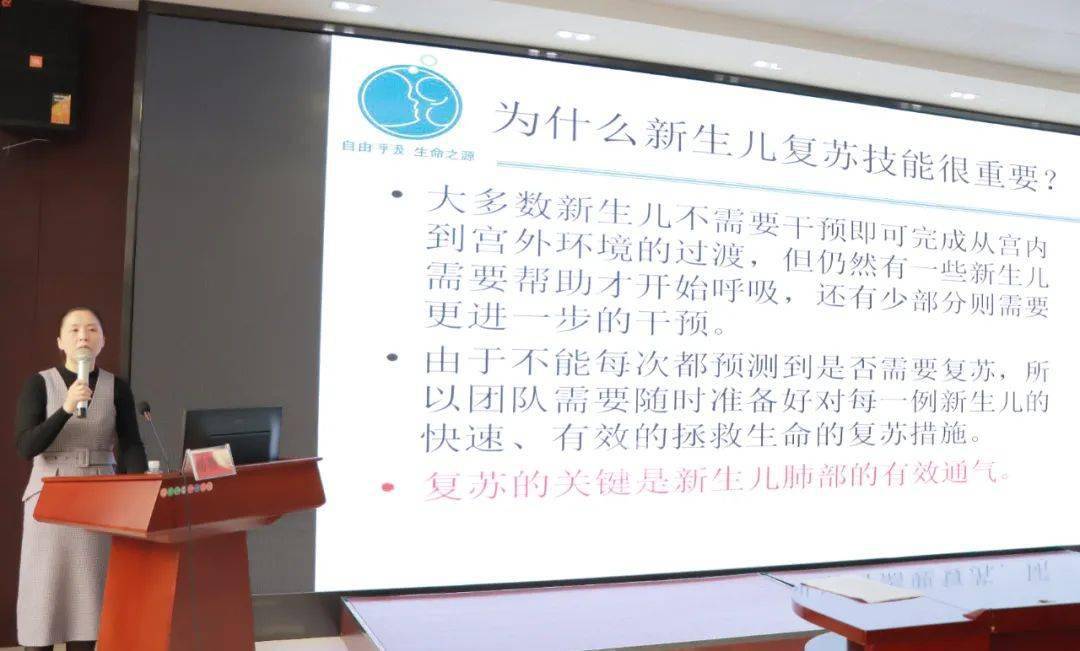 自由呼吸 生命之源
为什么新生儿复苏技能很重要?
• 大多数新生儿不需要干预即可完成从宫内
到宫外环境的过渡，但仍然有一些新生儿
需要帮助才开始呼吸，还有少部分则需要
更进一步的干预。
• 由于不能每次都预测到是否需要复苏，所
以团队需要随时准备好对每一例新生儿的
快速、有效的拯救生命的复苏措施。
• 复苏的关键是新生儿肺部的有效通气。
JBL